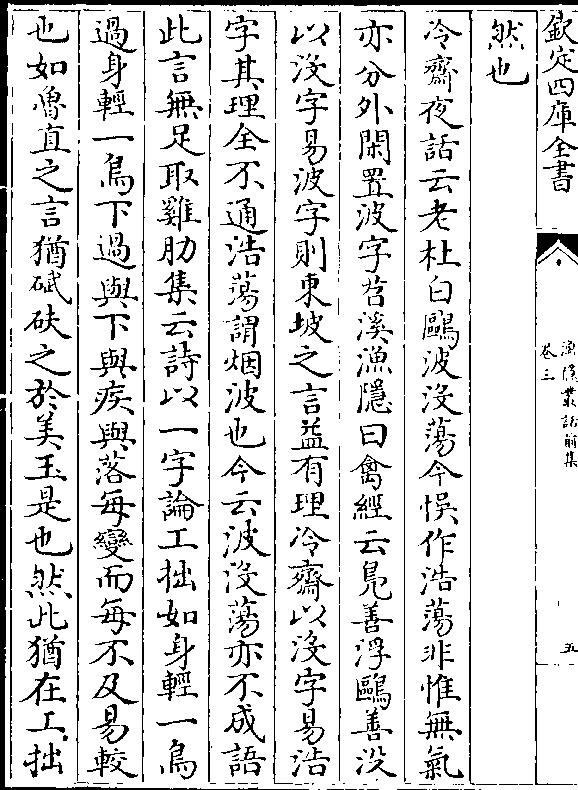 欽定四庫全書
漁隱叢話前集
卷三
五
然也
冷齋夜話云老杜白鷗波没蕩今悞作浩蕩非惟無氣
亦分外閑置波字苕溪漁隱曰禽經云鳧善浮鷗善没
以没字易波字則東坡之言益有理冷齋以没字易浩
字其理全不通浩蕩謂烟波也今云波没蕩亦不成語
此言無足取雞肋集云詩以一字論工拙如身輕一鳥
過身輕一鳥下過與下與疾與落每變而每不及易較
也如魯直之言猶碔砆之於美玉是也然此猶在工拙